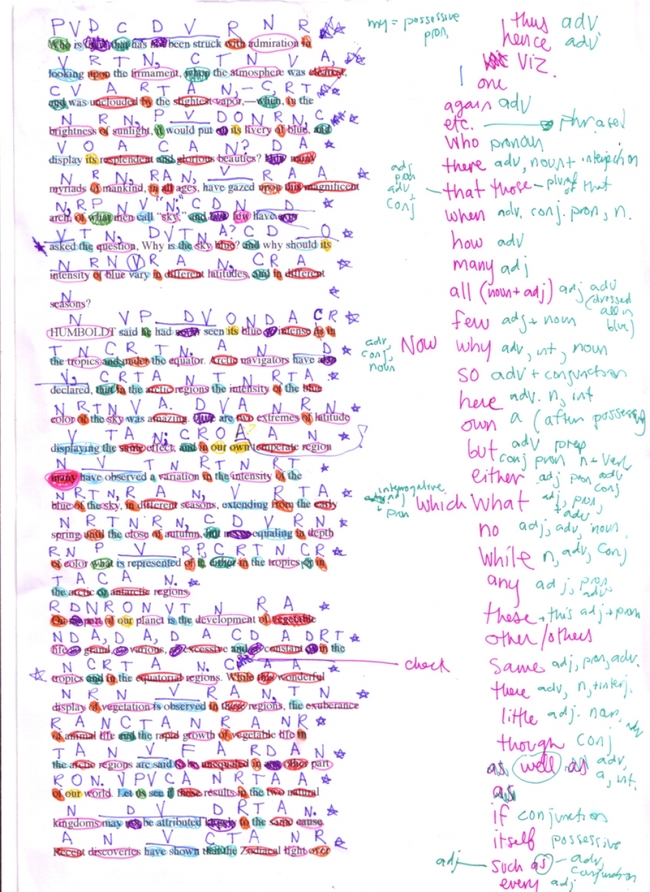 P V D C D V R N R
Who is that has been struck with admiration in
V R T N, C T N V A,
looking upon the firmament, when the atmosphere was
C V A R T A N, - C, R T
and was unclouded by the slightest vapor,—which, in the
N R N, P V D O N R N, C
brightness of sunlight, it would put its livery of blue, and
V O A C A N? D A
display its resplendent and glorious beauties? many
N R N, R A N, V R A A
myriads of mankind, in all ages, have gazed upon this magnificent
N, R P N V "N," C D N D
arch, of what men call "sky," and few have
V T N, D V T N A? C D V O
asked the question, Why is the sky blue? and why should its
N R N V R A N, C R A
intensity of blue vary in different latitudes, and in different
N
seasons?
N V P D V O N D A C R
HUMBOLDT said he had seen its blue intense as in
T N C R T N. A N D
the tropics and under the equator. Arctic navigators have
V, C R T A N T N R T A
declared, that in the arctic regions the intensity of the blue
N R T N V A. D V A N R N
color of the sky was amazing. are two extremes of latitude
V T A N, C R O A A N
displaying the same effect, and in our own temperate region
N V T N R T N R T
many have observed a variation in the intensity of the
N R T N, R A N, V R T A
blue of the sky, in different seasons, extending from the early
N R T N R N, C D V R N
spring until the close of autumn, equaling in depth
R N P V R P, C R T N C R
of color what is represented of it, either in the tropics or in
T A C A N.
the arctic or antarctic regions
R D N R O N V T N R A
part of our planet is the development of vegetable
N D A, D A, D A C D A D R T
life grand, various, excessive and constant in the
N C R T A N. C A A
tropics and in the equatorial regions. While this wonderful
N R N V R A N, T N
display of vegetation is observed in these regions, the exuberance
R A N C T A N R A N R
of animal life and the rapid growth of vegetable life in
T A N V F A R D A N
the arctic regions are said to be unequaled in other part
R O N. V P V C A N R T A A
of our world. Let us see if these results in the two natural
N D V D R T A N.
kingdoms may be attributed to the same cause.
A N V C T A N R
Recent discoveries have shown that the Zodiacal light over
my = possessive
pron.
thus adv
hence adv
viz.
1 one
again adv
etc. phrase
who pronoun
there adv, noun + interjection
adj
pron
adv
conj
that those - plural of that
when adv. conj. pron, n.
how adv
many adj
all (noun + adj) adj adv
(dressed
all in
blue)
few adj + noun
adv,
conj,
noun
Now why adv, int, noun
so adv + conjunction
here adv. n, int
own a (after possessing
but adv prep
conj pron n + verb
either adj pron adv
conj
interrogative
adj
+ pron
which what adj, pron,
+ adv
no adj, adv, noun
while n, adv, conj
any adj, pron,
adv
these + this adj + pron
other/others
check
same adj, pron, adv.
there adv, n, + interj.
little adj. noun, adv
though conj
as well as adv,
a, int.
as
if conjunction
itself possessive
adj
such as - adv,
conjunction
every adj